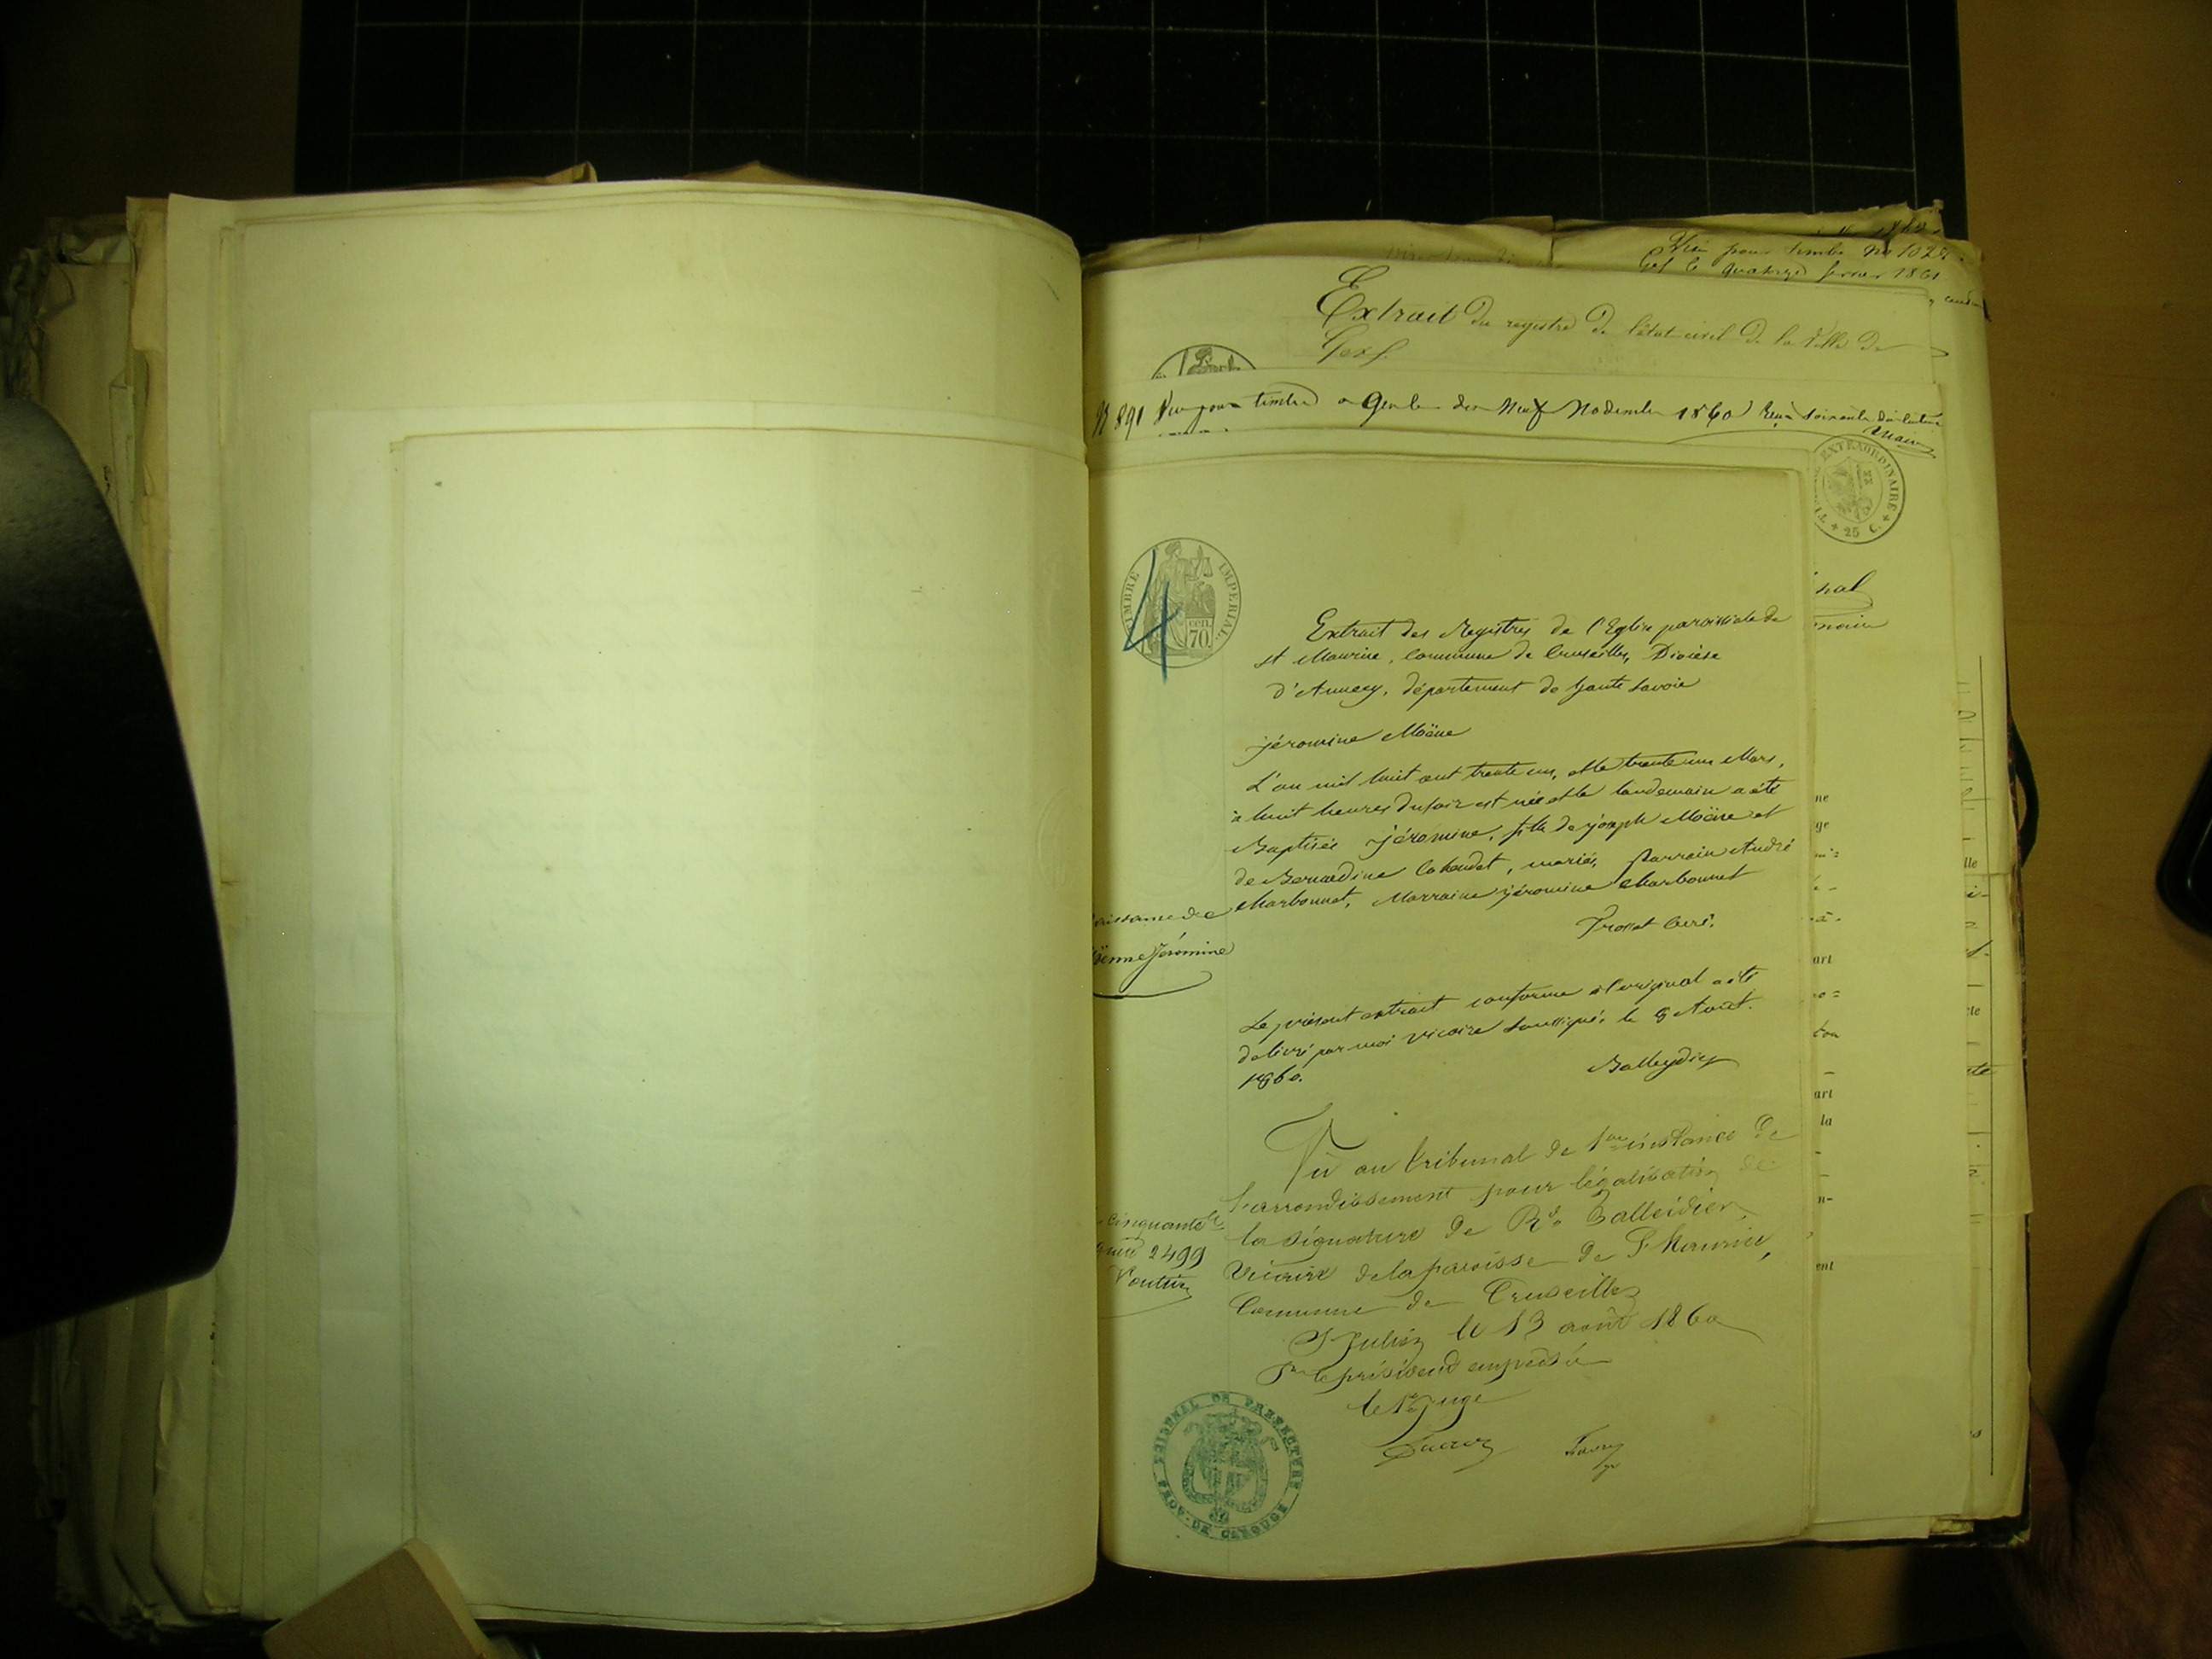 Vu pour timbre No 1020
Gex le quatorze février 1861
Extrait du registre de l'état civil de la Ville de
Gex.
No 891 Vu pour timbre a Genève du Neuf Novembre 1860 Reçu soixante dix centimes
TIMBRE EXTRAORDINAIRE
25 C.
TIMBRE IMPERIAL
CEN. 70.
4
Extrait des Registres de l'Eglise paroissiale de
st Maurice, commune de Cruseilles, Diocèse
d'Annecy, département de haute savoie
jéromine Moëne
L'an mil huit cent trente un, et le trente un Mars,
à huit heures du soir est née et le landemain a été
Baptisée jéromine, fille de joseph Moëne et
de Bernardine Cohendet, mariés, Parrain André
Charbonnet, Marraine jéromine Charbonnet
curé.
aissance de
oënne Jéromine
Le présent extrait conforme à l'original a été
délivré par moi vicaire soussigné, le 8 Aout.
1860.
Balleydier
Vu au tribunal de 1ère instance de
l'arrondissement pour légalisation de
la signature de Rd Balleidier,
Vicaire de la paroisse de St Maurice,
Commune de Cruseilles
St Julien le 13 août 1860
Pr le président empêché
le 1er juge
cinquante
2499
TRIBUNAL DE PREFECTURE
PROV. DE CAROUGE